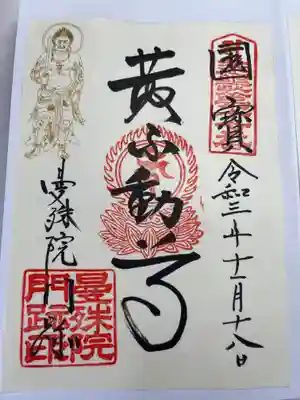 國寶
令和三年十一月十八日
黄不動尊
曼殊院門跡
曼殊院
門跡印